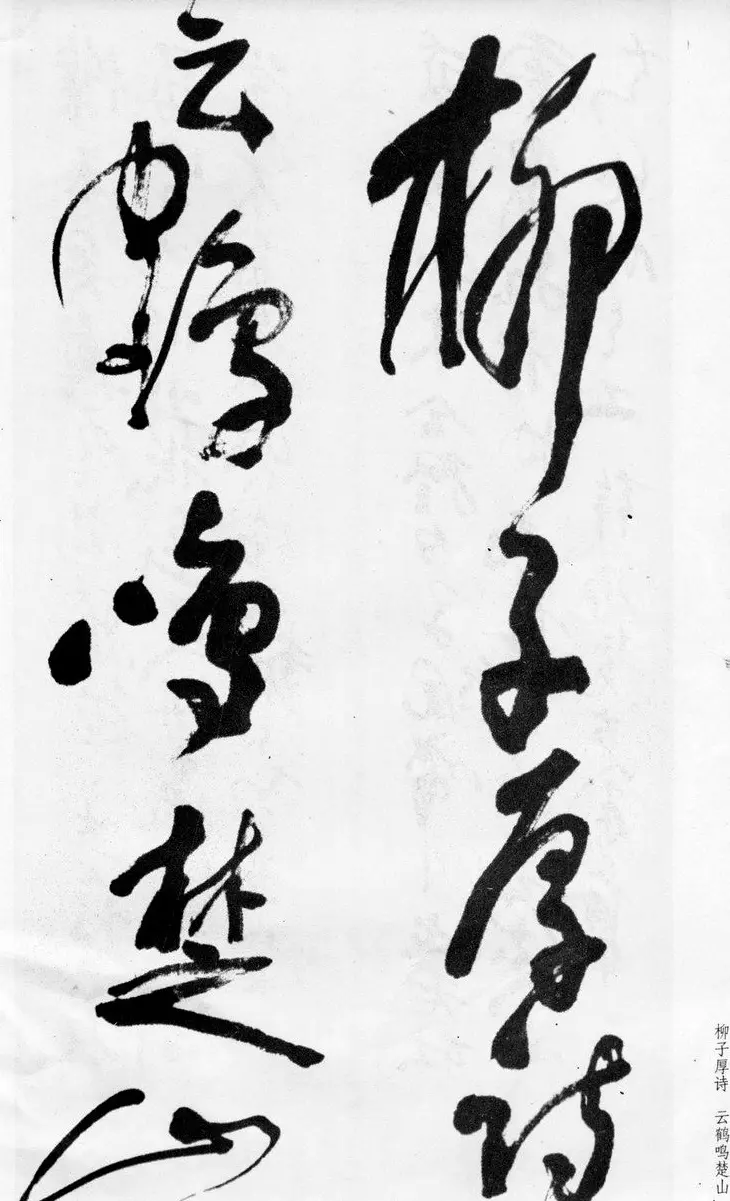 柳子厚诗
云鹤鸣楚山
柳子厚诗 云鹤鸣楚山